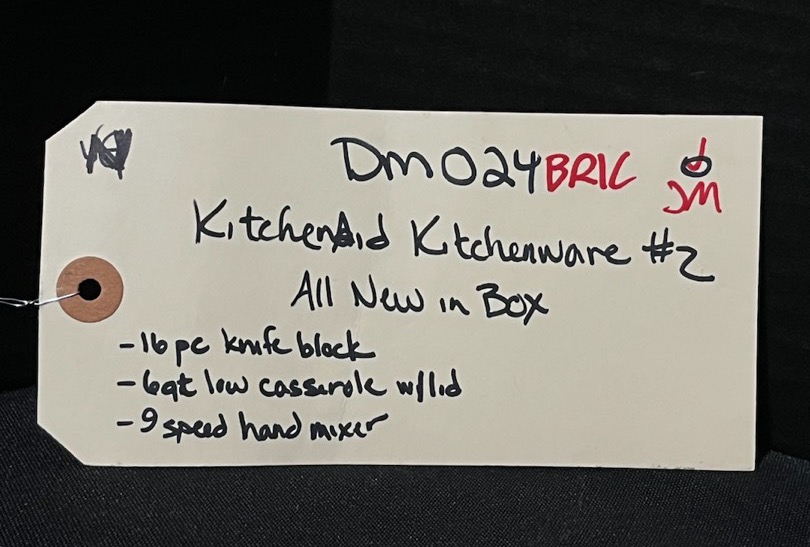 DM024BRIC
JM
KitchenAid Kitchenware #2
All New in Box
-16pc knife block
-6qt low casserole w/lid
-9 speed hand mixer